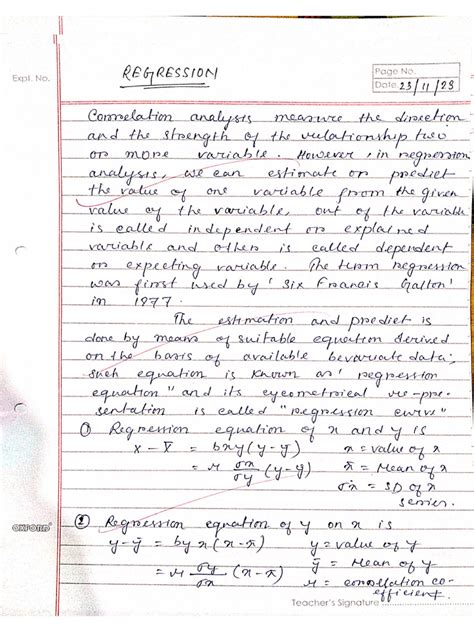 REGRESSION
Expt. No.
Page No.
Date 23/11/23
Correlation analysis measure the direction
and the strength of the relationship two
or more variable. However, in regression
analysis, we can estimate or predict
the value of one variable from the given
value of the variable, out of the variable
is called independent or explained
variable and other is called dependent
or expecting variable. The term regression
was first used by 'Six Francis Galton'
in 1877.
The estimation and predict is
done by means of suitable equation derived
on the basis of available bevariate data;
such equation is known as' regression
equation" and its eyeometrical re-pre-
sentation is called "regression curve"
① Regression equation of x and y is
x - x̄ = bxy (y - ȳ) x = value of x
= r σx/σy (y - ȳ) x̄ = Mean of x
σx = SD of x
series.
② Regression equation of y on x is
y - ȳ = byx (x - x̄) y = value of y
= r σy/σx (x - x̄) ȳ = Mean of y
r = correlation co-
efficient.
OXFORD
Teacher's Signature